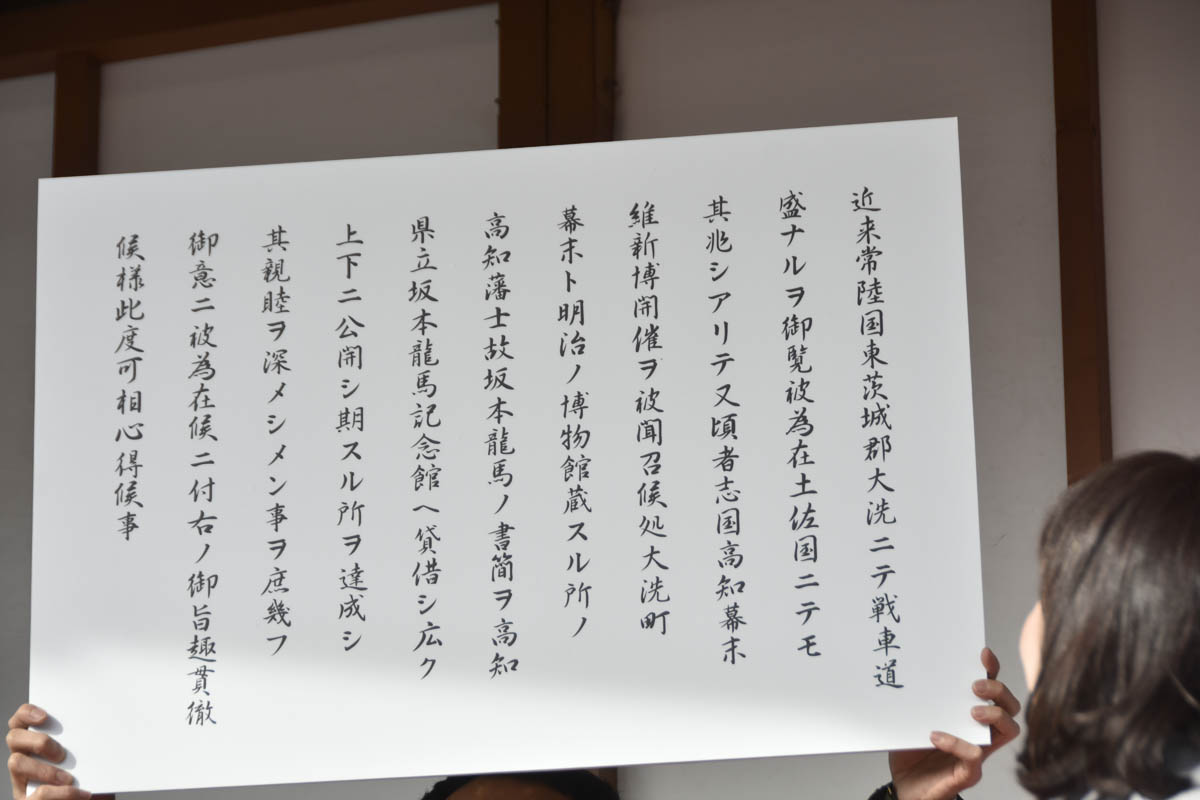 近来常陸国東茨城郡大洗ニテ戦車道
盛ナルヲ御覧被為在土佐国ニテモ
其兆シアリテ又頃者志国高知幕末
維新博開催ヲ被聞召候処大洗町
幕末ト明治ノ博物館蔵スル所ノ
高知藩士故坂本龍馬ノ書簡ヲ高知
県立坂本龍馬記念館ヘ貸借シ広ク
上下ニ公開シ期スル所ヲ達成シ
其親睦ヲ深メシメン事ヲ庶幾フ
御意ニ被為在候ニ付右ノ御旨趣貫徹
候様此度可相心得候事